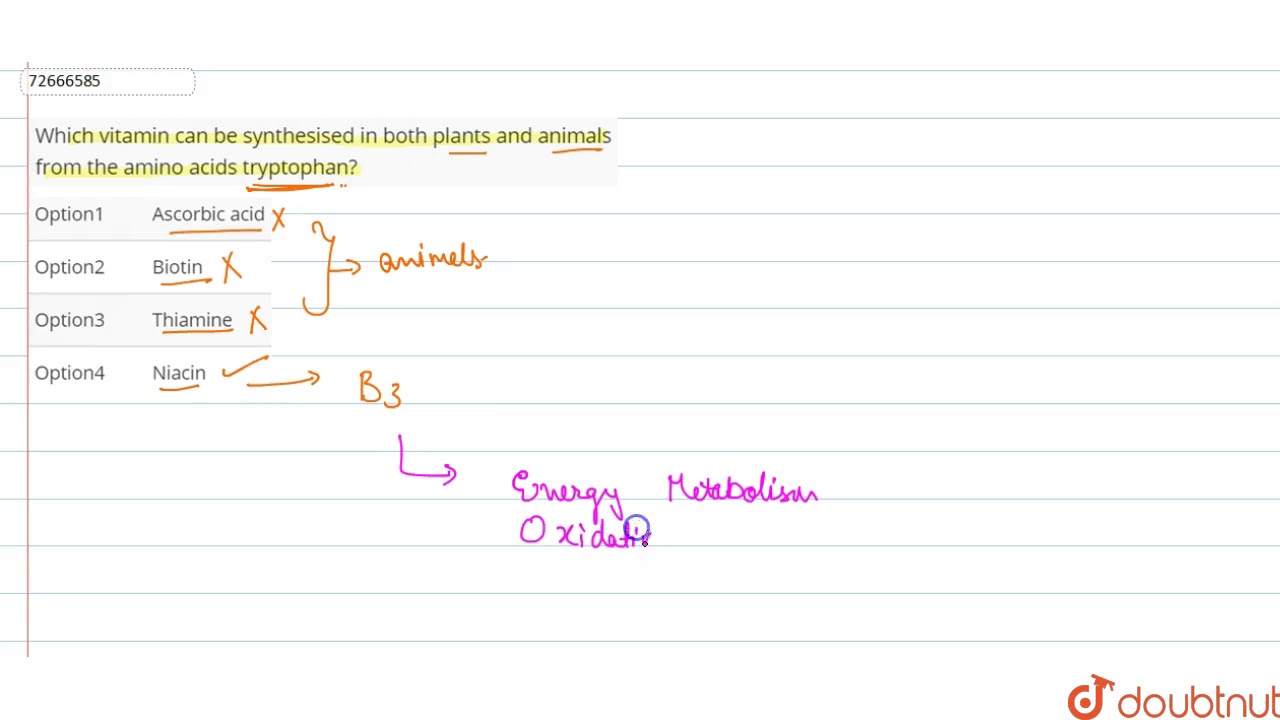 72666585
Which vitamin can be synthesised in both plants and animals
from the amino acids tryptophan?
Option1 Ascorbic acid X
Option2 Biotin X
Option3 Thiamine X
animals
Option4 Niacin
B3
Energy Metabolism
doubtnut